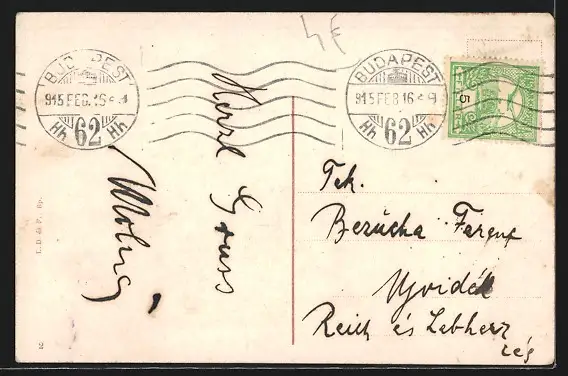 BUDAPEST
915 FEB. 16
Hh 62 Hh
BUDAPEST
915 FEB 16
Hh 62 Hh
5
Herzl. Gruss
Tek.
Berucha Ferenc
Ujvidék
Reich és Lebherz
cég